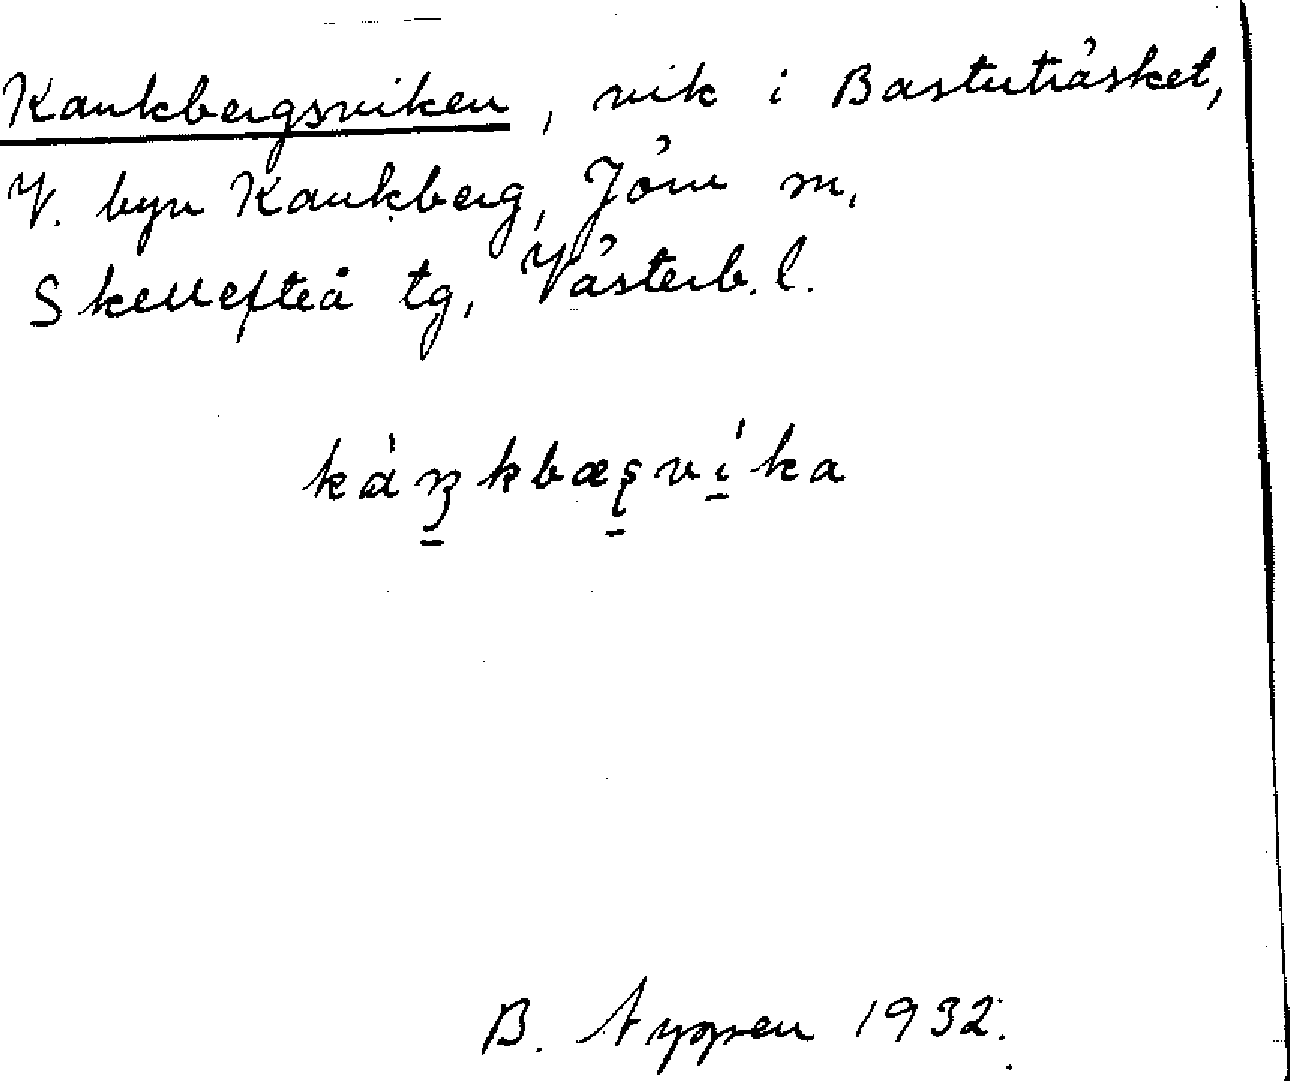 Kankbergsviken, vik i Bastuträsket,
V. byn Kankberg, Jörn sn,
Skellefteå tg, Västerb. l.
kàŋkbæʂvíka
B. Nyppen 1932.